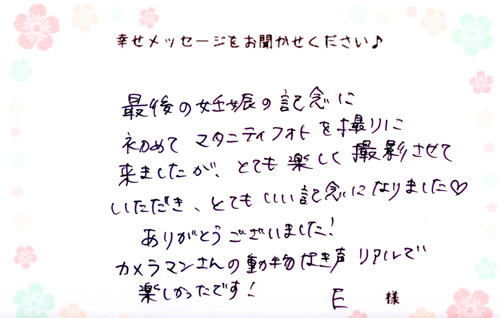 幸せメッセージをお聞かせください♪
最後の妊娠の記念に
初めて マタニティフォトを撮りに
来ましたが、とても楽しく撮影させて
いただき、とてもいい記念になりました♡
ありがとうございました！
カメラマンさんの動物なき声リアルで
楽しかったです！
E 様